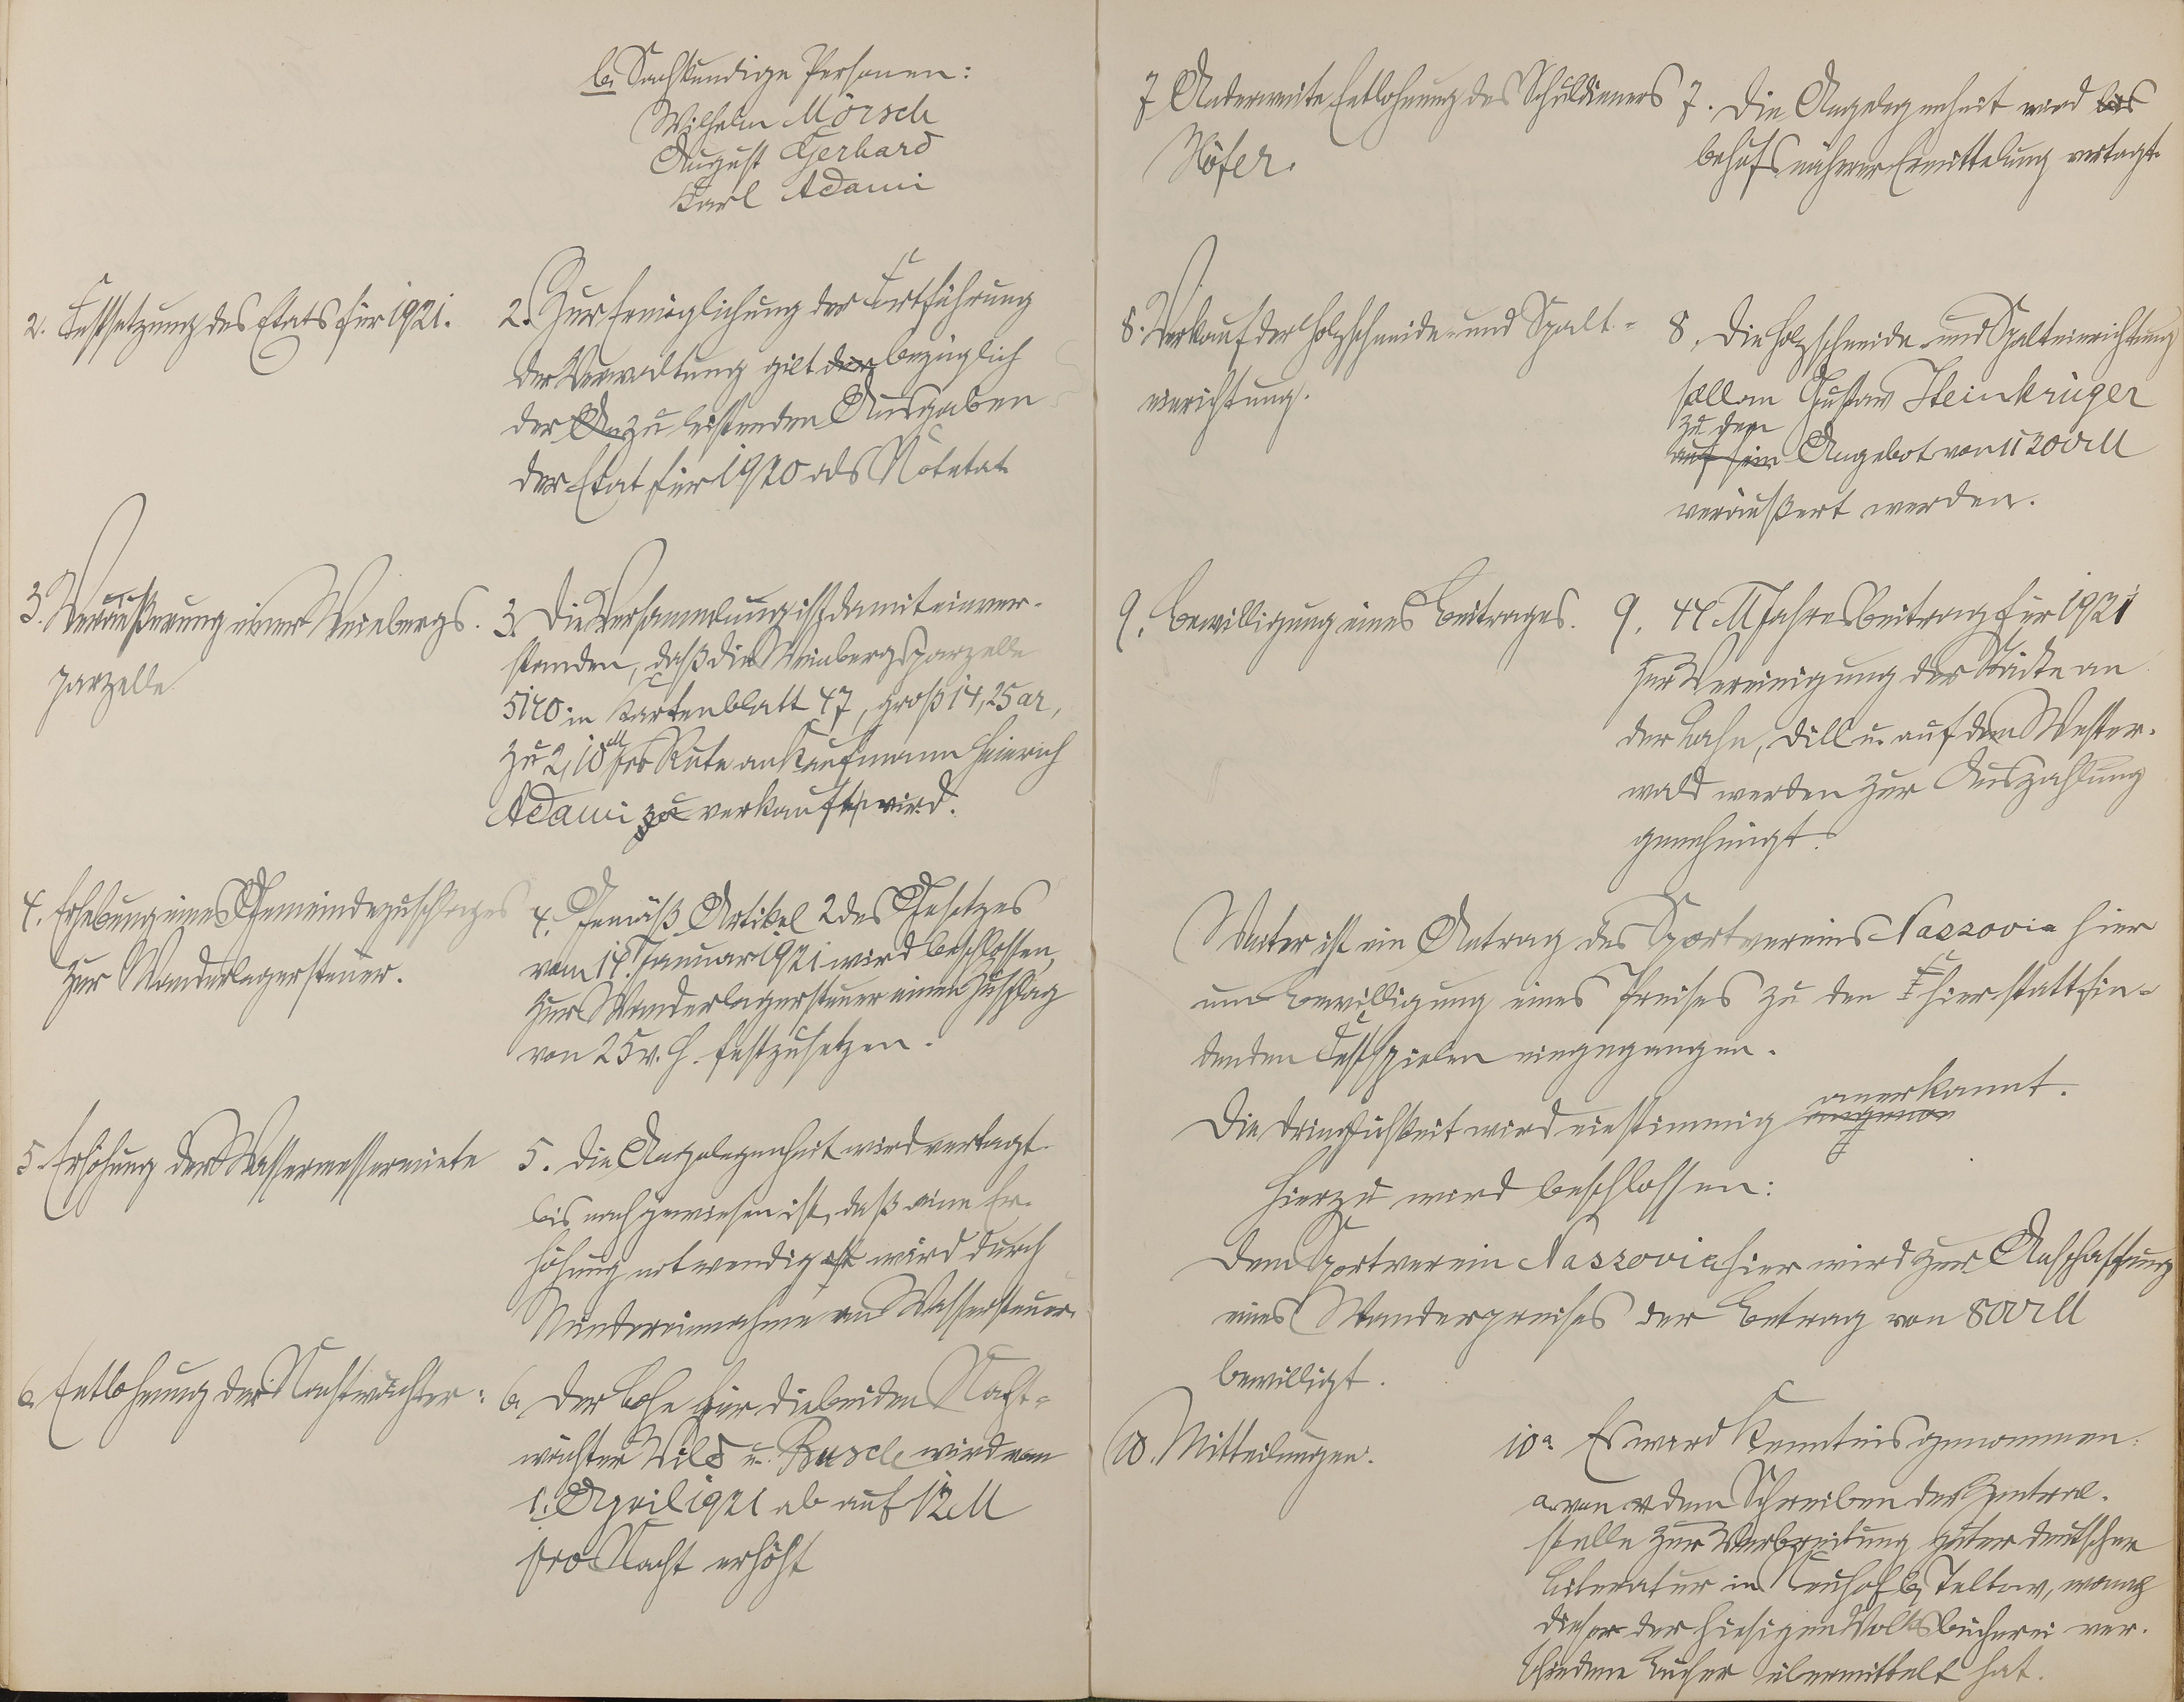 b. Sachkundige Personen:
Wilhelm Mörsch
August Gerhard
Karl Adami
2. Festsetzung des Etats für 1921.
2. Zur Ermöglichung der Fortführung
der Verwaltung gilt den bezüglich
der An zu leistenden Ausgaben
der Etat für 1920 als Notetat
3. Veräußerung einer Weinbergs-
parzelle
3. Die Versammlung ist damit einver-
standen, daß die Weinbergsparzelle
5140 in Kartenblatt 47, groß 14,25 ar,
zu 2,10 M pro Rute an Kaufmann Heinrich
Adami zu verkauft wird.
4. Erhebung eines Gemeindezuschlages
zur Wanderlagersteuer.
4. Gemäß Artikel 2 des Gesetzes
vom 14. Januar 1921 wird beschlossen,
zur Wanderlagersteuer einen Zuschlag
von 25 v. H. festzusetzen.
5. Erhöhung der Wassermessermiete
5. Die Angelegenheit wird vertagt
bis nachgewiesen ist, daß eine Er-
höhung notwendig ist wird durch
Mindereinnahme an Wassersteuer.
6. Entlohnung der Nachtwächter:
6. Der Lohn für die beiden Nacht-
wächter Wild u. Busch wird vom
1. April 1921 ab auf 12 M
pro Nacht erhöht
7 Anderweite Entlohnung des Schuldieners
Höfer.
7. Die Angelegenheit wird bis
behufs näherer Ermittelung vertagt.
8. Verkauf der Holzschneide- und Spalt-
einrichtung.
8. Die Holzschneide- und Spalteinrichtung
soll an Gustav Steinkrüger
zu dem
auf sein Angebot von 11200 M
veräußert werden.
9. Bewilligung eines Beitrages.
9. 44 M Jahresbeitrag für 1921
zur Vereinigung der Städte an
der Lahn, Dill u. auf dem Wester-
wald werden zur Auszahlung
genehmigt.
Weiter ist ein Antrag des Sportvereins Nassovia hier
um Bewilligung eines Preises zu den hier stattfin-
denden Festspielen eingegangen.
anerkannt.
Die Dringlichkeit wird einstimmig angenom
Hierzu wird beschlossen:
Dem Sportverein Nassovia hier wird zur Anschaffung
eines Wanderpreises der Betrag von 800 M
bewilligt.
10. Mitteilungen.
10a Es wird Kenntnis genommen:
a. von dem Schreiben der Zentral-
stelle zur Verbreitung guter deutscher
Literatur in Neuhof b. Teltow, wonach
dieser der hiesigen Volksbücherei ver-
schiedene Bücher übermittelt hat.